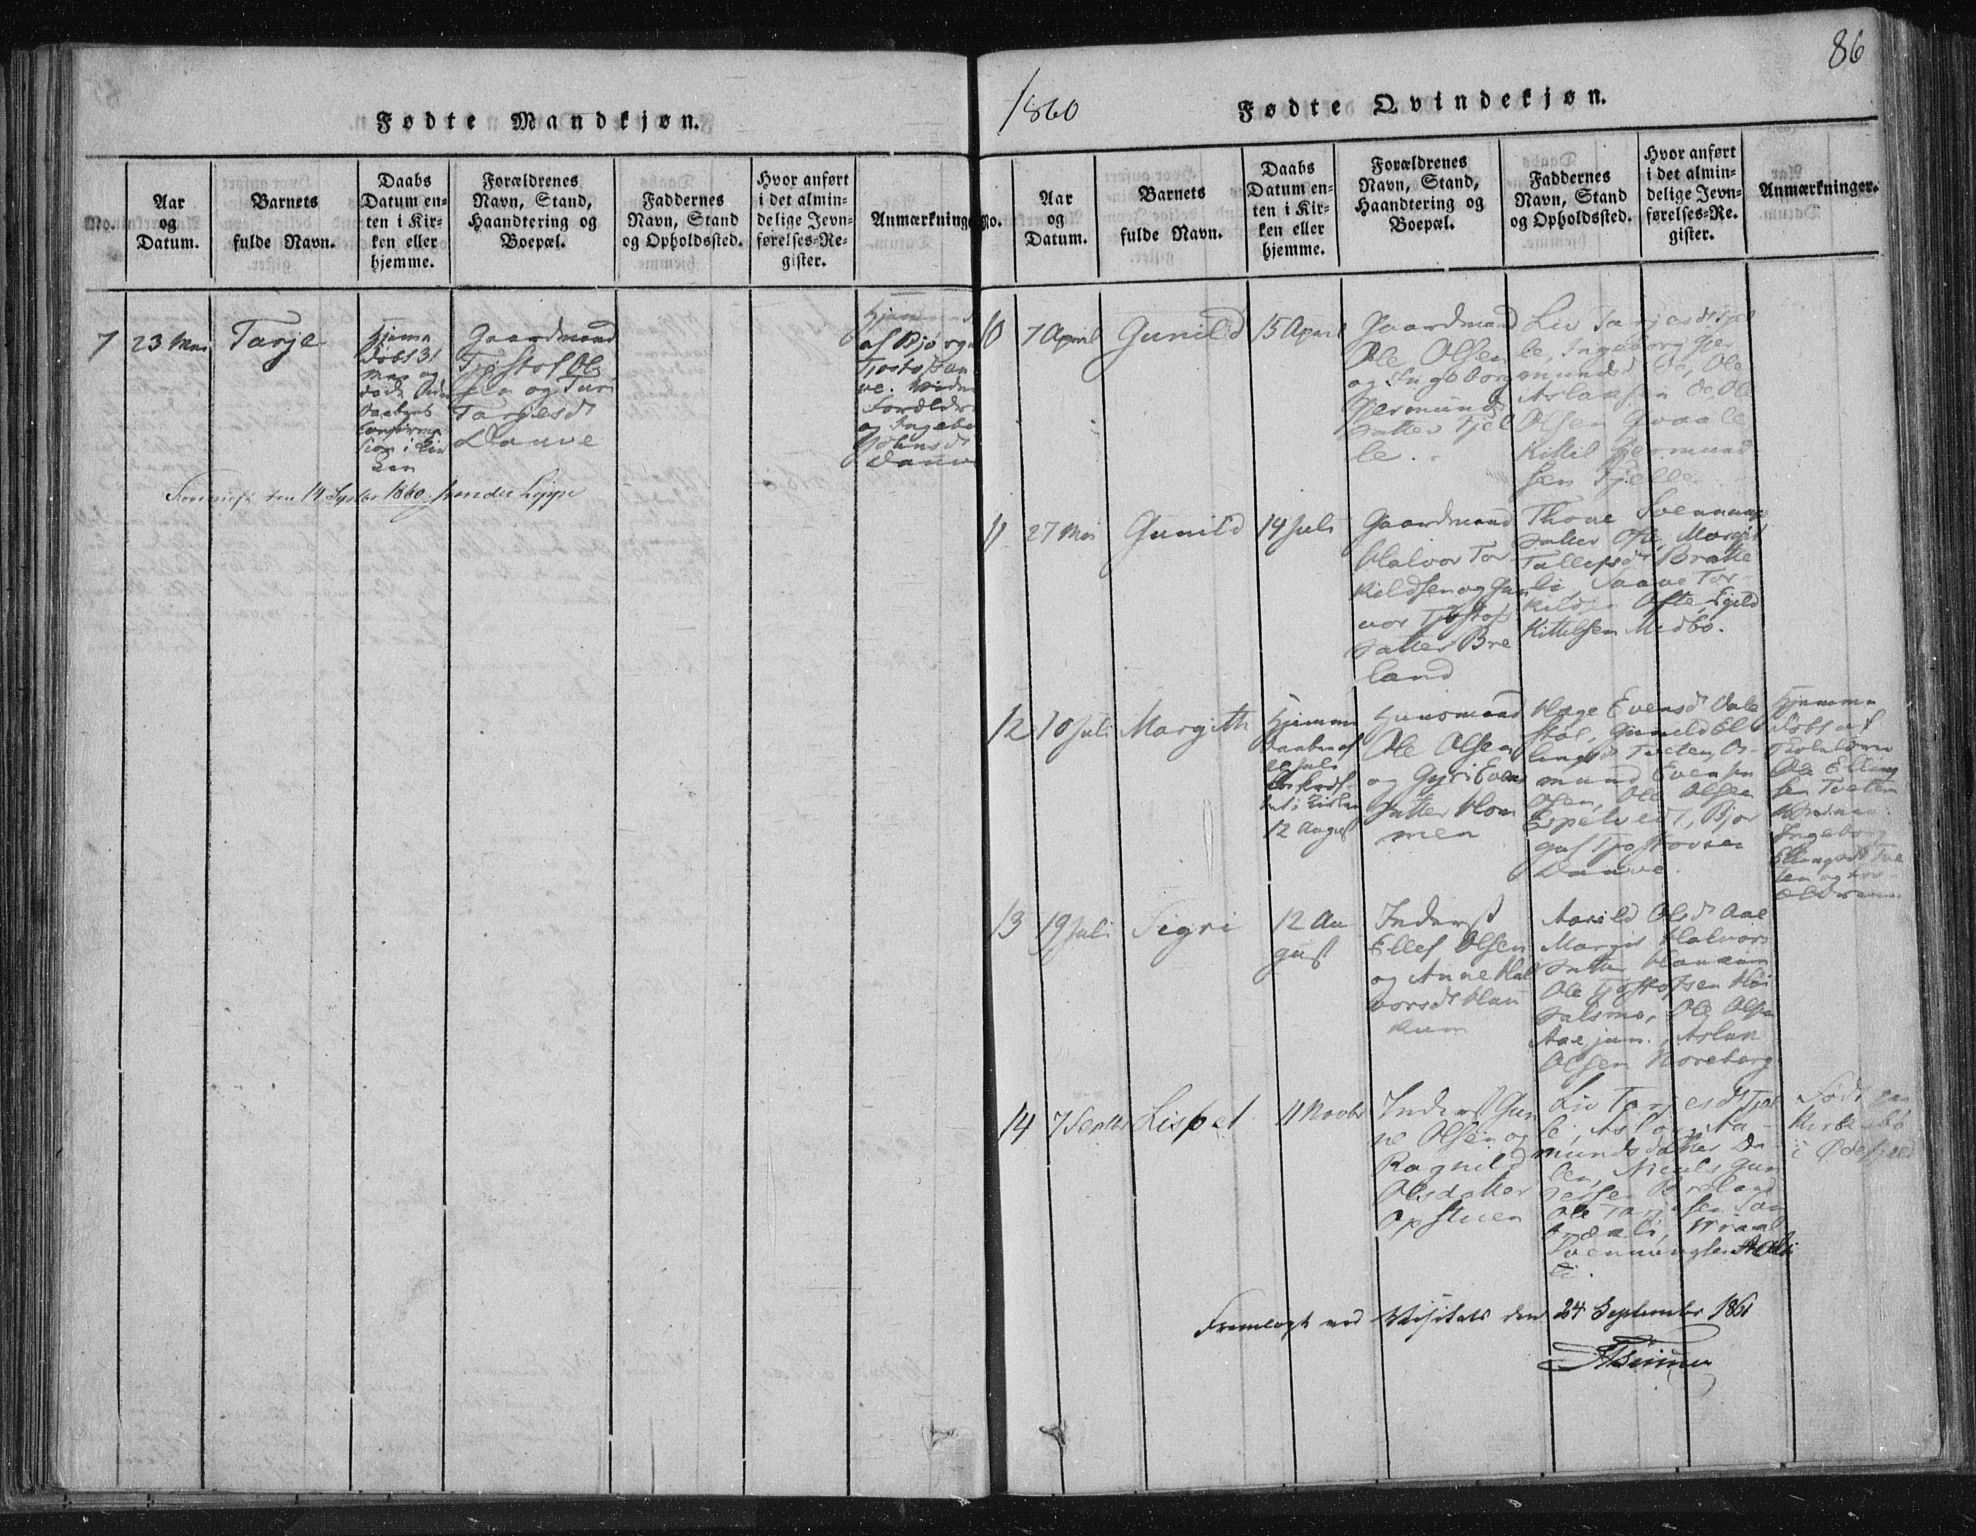 Fødte Mandkjøn.
No.
Aar
og
Datum.
Barnets
fulde Navn.
Daabs
Datum en-
ten i Kir-
ken eller
hjemme.
Forældrenes
Navn, Stand,
Haandtering og
Boepæl.
Faddernes
Navn, Stand
og Opholdssted.
Hvor anført
i det almin-
delige Jevn-
førelses-Re-
gister.
Anmærkninge
7
23 Mai
Tarje
Hjemme
døbt 31
Mai og
døde
Daabens
Confirma
tion i Kir
ken
Gaardmand
Tjostof Ol
sen og Turi
Targesdt
Dauve
af Bjørgu
Tjostofsen
ve. Vidne
Forældre
og Ingebo
Johnsdt
Dauve
1860
86
Fødte Qvindekjøn.
No.
Aar
og
Datum.
Barnets
fulde Navn.
Daabs
Datum en-
ten i Kir-
ken eller
hjemme.
Forældrenes
Navn, Stand,
Haandtering og
Boepæl.
Faddernes
Navn, Stand
og Opholdssted.
Hvor anført
i det almin-
delige Jevn-
førelses-Re-
gister.
Anmærkninger.
10
7 April
Gunild
15 April
Gaardmand
Ole Olsen
og Ingeborg
Gjermunds
datter Fjel
le.
Liv Tarjesdt Fjel
le, Ingeborg Gjer
mundsd do, Ole
Aslaksen do, Ole
Olsen Qvaale
Kittil Gjermund
sen Fjelle
11
27 Mai
Gunild
14 Juli
Gaardmand
Halvor Tor
kildsen og Gun
vor Tjostofs
datter Bre
land
Thone Svennungs
datter Ofte, Margit
Tallefsdt Bratte
li, Saave Tor-
kilds Ofte, Egild
Kittelsen Medbø.
12
10 Juli
Margith
Hjemme
daaben af
Juli
i Kirken
12 August
Huusmand
Ole Olsen
og Gyri Evens
datter Hom
men
Hæge Evensdt Dale
støl, Gunild El
lingsdt Tveten, Os-
mund Evensen
Ofen, Ole Olsen
Espelvedt, Bjør
guf Tjostovsen
Dauve.
Hjemme
døbt af
Skolelærer
Ole Elling
sen Tveten
Vidner:
Ingeborg
Ellingsdt Tve
ten og For-
ældrene
13
19 Juli
Sigri
12 Au
gust
Inderst
Ellef Olsen
og Anne Hal
vorsdt Hau
kum
Aasild Olsdt Aae
Margit Halvors
datter Haukum
Ole Tjostofsen Høi
dalsmo, Ole Olsen
Aae jun., Aslak
Olsen Noreberg
14
7 Septbr
Lispet
11 Novbr
Inderst Gun
ne Olsen og
Ragnild
Olsdatter
Opstuen
Liv Tarjesdt Fjel
le, Aslaug Aa-
mundsdatter Da
len, Nicols Gun
dersen Breland
Ole Tarjesen San
dali, Wraal
Svennungsen
li.
Født paa
Kirkebø
i Ødefjeld
Fremlagt ved Visitats den 24 September 1861